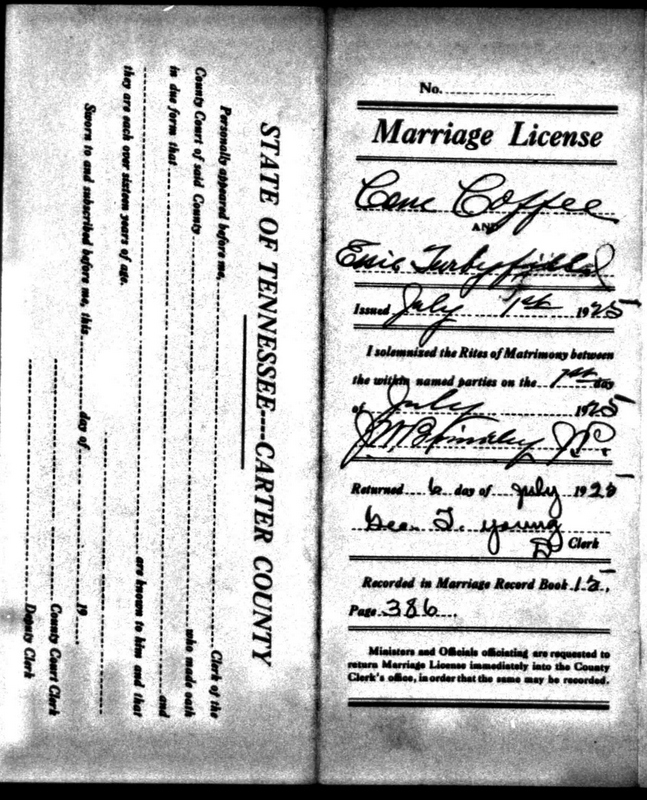 STATE OF TENNESSEE---CARTER COUNTY
Personally appeared before me, Clerk of the
County Court of said County who made oath
in due form that and
are known to him and that
they are each over sixteen years of age.
Sworn to and subscribed before me, this day of 19
County Court Clerk
Deputy Clerk
No.
Marriage License
Coffee
AND
Essie Turbyfield
Issued July 1st 1925
I solemnized the Rites of Matrimony between
the within named parties on the 1st day
of July 1925
J.P.
Returned 6 day of July 1925
Geo. T. Young
D Clerk
Recorded in Marriage Record Book 15,
Page 386
Ministers and Officials officiating are requested to
return Marriage License immediately into the County
Clerk's office, in order that the same may be recorded.